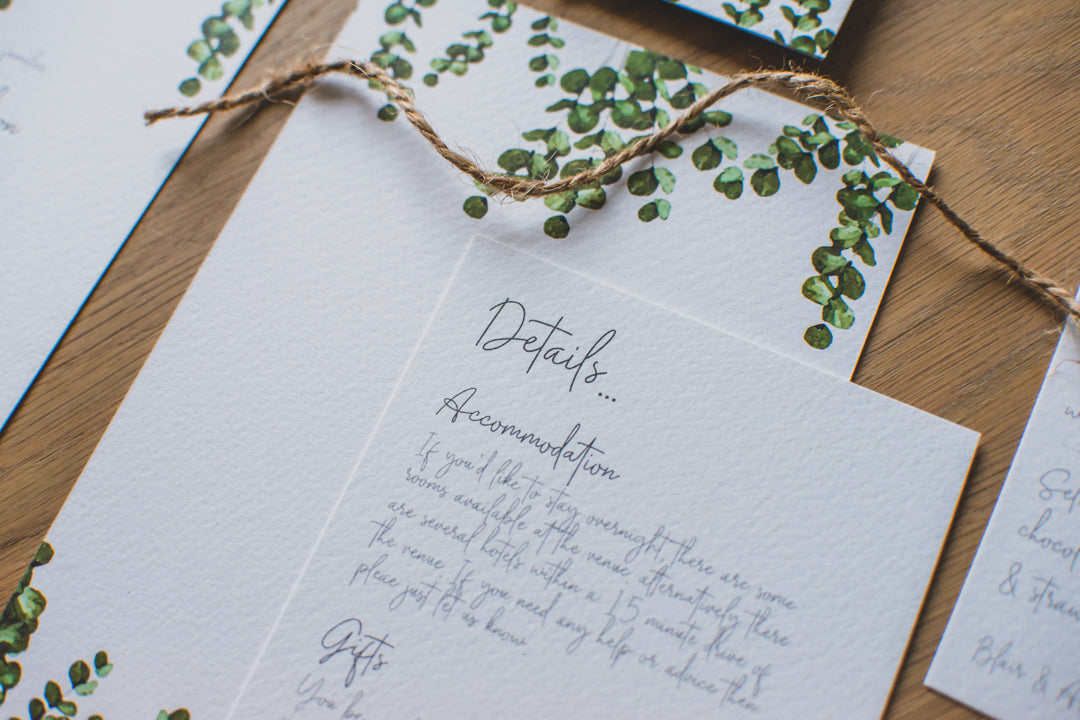 Details...
Accommodation
If you'd like to stay overnight, there are some
rooms available at the venue, alternatively there
are several hotels within a 15 minute drive of
the venue. If you need any help or advice then
pleae just let us know.
Gifts
You
Sel
chocol
& straw
Blair & A